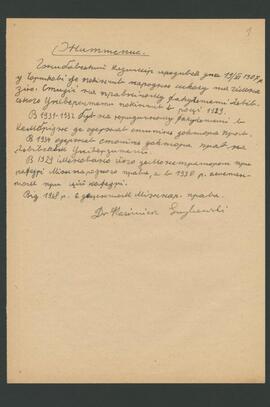 1
Життєпис.
Казимір уродився дня 19/XI 190
у де покінчив народню школу та гімна
зію. Студії на правничому факультеті Львів
ського Університету покінчив в році 1929.
В 1931-1932 був на юридичному факультеті в
Кембрідже де одержав степінь доктора прав.
В 1934 одержав степінь доктора прав на
Львівськім Університеті.
В 1929 іменовано його демонстратором при
кафедрі Міжнародного права, а в 1930 р. асистен-
том при цій кафедрі.
Від р. є доцентом Міжнар. права.
Dr Kazimierz